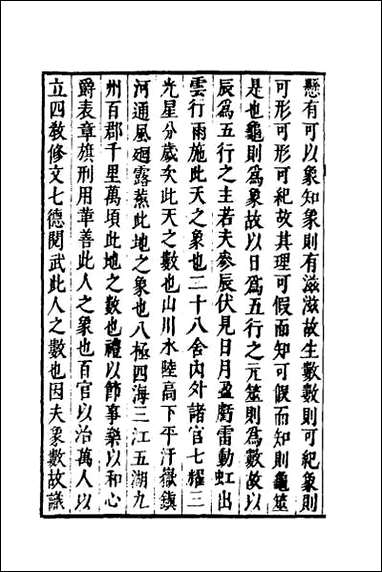 懸有可以象知象則有滋滋故生數數則可紀象則
可形可形可紀故其理可假而知可假而知則龜筮
是也龜則爲象故以日爲五行之元筮則爲數故以
辰爲五行之主若夫參辰伏見日月盈虧雷動虹出
雲行雨施此天之象也二十八舍內外諸官七耀三
光星分歲次此天之數也山川水陸高下平汙嶽鎮
河通風廻露蒸此地之象也八極四海三江五湖九
州百郡千里萬頃此地之數也禮以節事樂以和心
爵表章旗刑用革善此人之象也百官以治萬人以
立四敎修文七德閱武此人之數也因夫象數故議